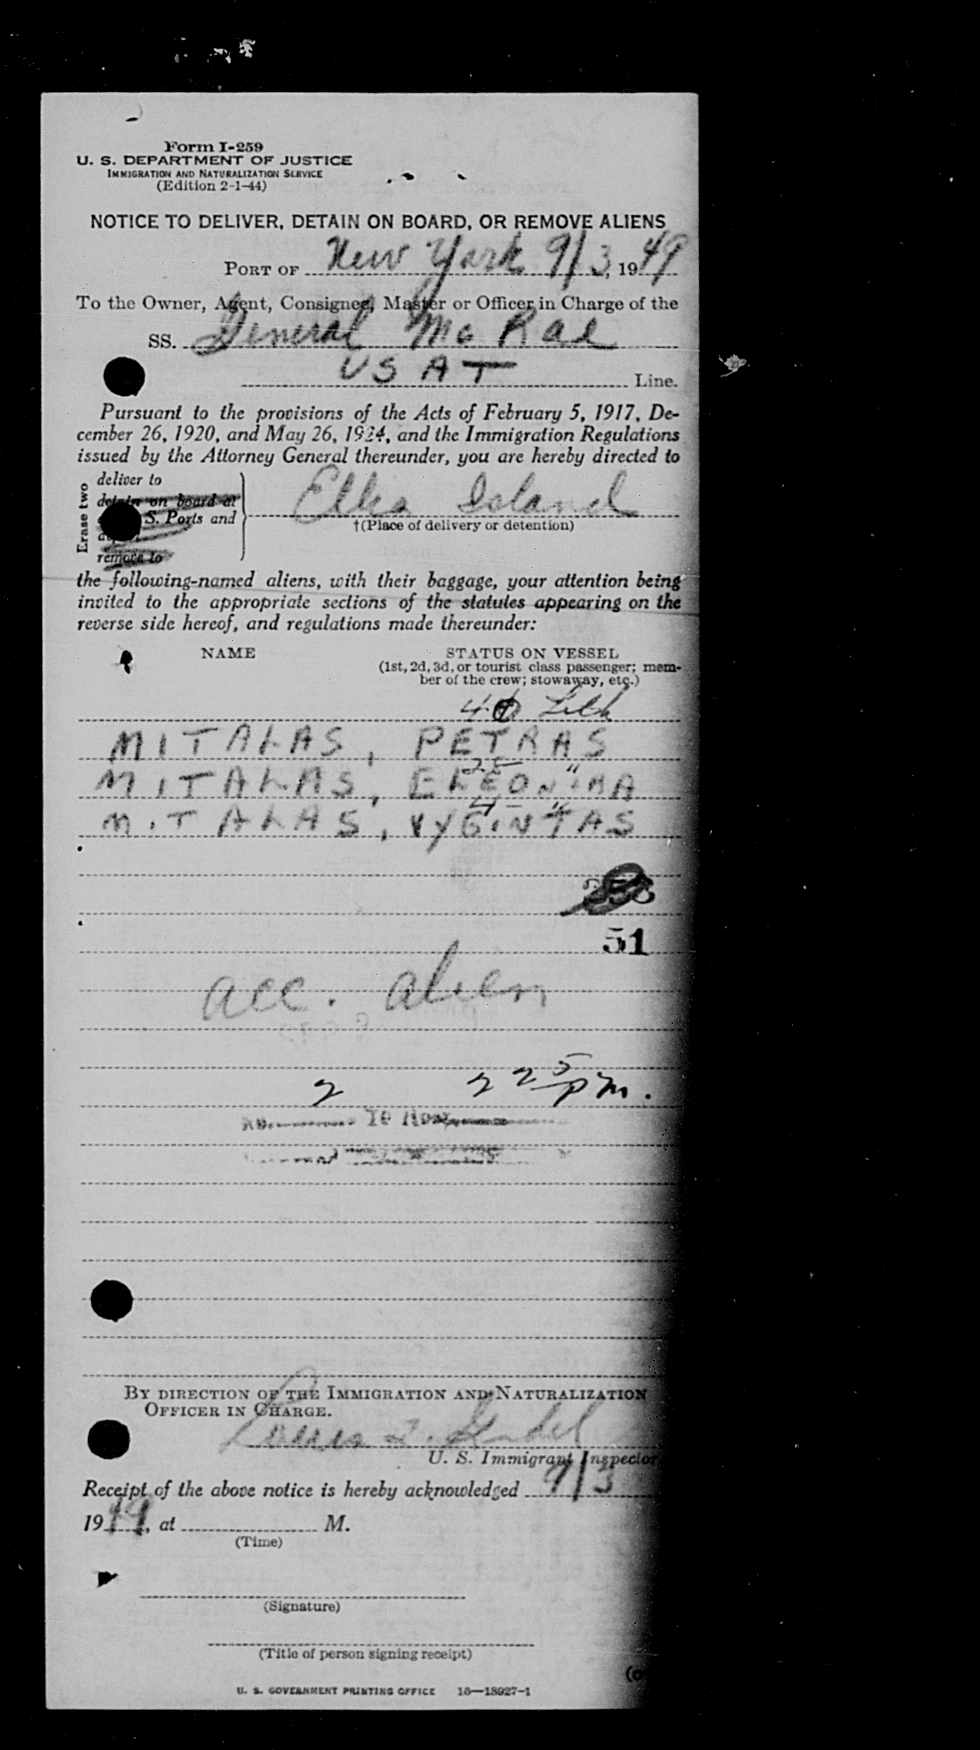 Form I-259
U. S. DEPARTMENT OF JUSTICE
IMMIGRATION AND NATURALIZATION SERVICE
(Edition 2-1-44)
NOTICE TO DELIVER, DETAIN ON BOARD, OR REMOVE ALIENS
PORT OF New York 9/3, 1949
To the Owner, Agent, Consignee, Master or Officer in Charge of the
SS. General Mc Rae
USAT Line.
Pursuant to the provisions of the Acts of February 5, 1917, De-
cember 26, 1920, and May 26, 1924, and the Immigration Regulations
issued by the Attorney General thereunder, you are hereby directed to
Erase two
deliver to
detain on board at
S. Ports and
remove to
Ellis Island
†(Place of delivery or detention)
the following-named aliens, with their baggage, your attention being
invited to the appropriate sections of the statutes appearing on the
reverse side hereof, and regulations made thereunder:
NAME STATUS ON VESSEL
(1st, 2d, 3d, or tourist class passenger; mem-
ber of the crew; stowaway, etc.)
40 Lith
MITALAS, PETRAS
25 "
MITALAS, ELEONIMA
4 "
MITALAS, VYGINTAS
258
51
acc. alien
2 2 25 pm.
BY DIRECTION OF THE IMMIGRATION AND NATURALIZATION
OFFICER IN CHARGE.
Louis
U. S. Immigrant Inspector
Receipt of the above notice is hereby acknowledged 9/3
1949, at M.
(Time)
(Signature)
(Title of person signing receipt)
U. S. GOVERNMENT PRINTING OFFICE 16—18927-1